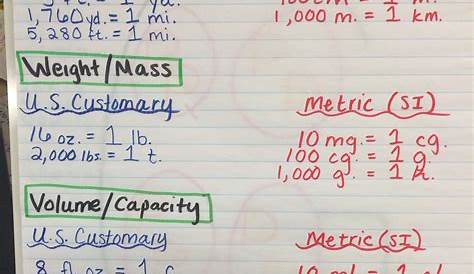 3 ft. = 1 yd.
1,760 yd. = 1 mi.
5,280 ft. = 1 mi.
100 cm = 1 m.
1,000 m. = 1 km.
Weight/Mass
U.S. Customary
16 oz. = 1 lb.
2,000 lbs. = 1 t.
Metric (SI)
10 mg. = 1 cg.
100 cg. = 1 g.
1,000 g. = 1 k.
Volume/Capacity
U.S. Customary
8 fl oz. = 1 c.
Metric (SI)
10 ml. = 1 cl.